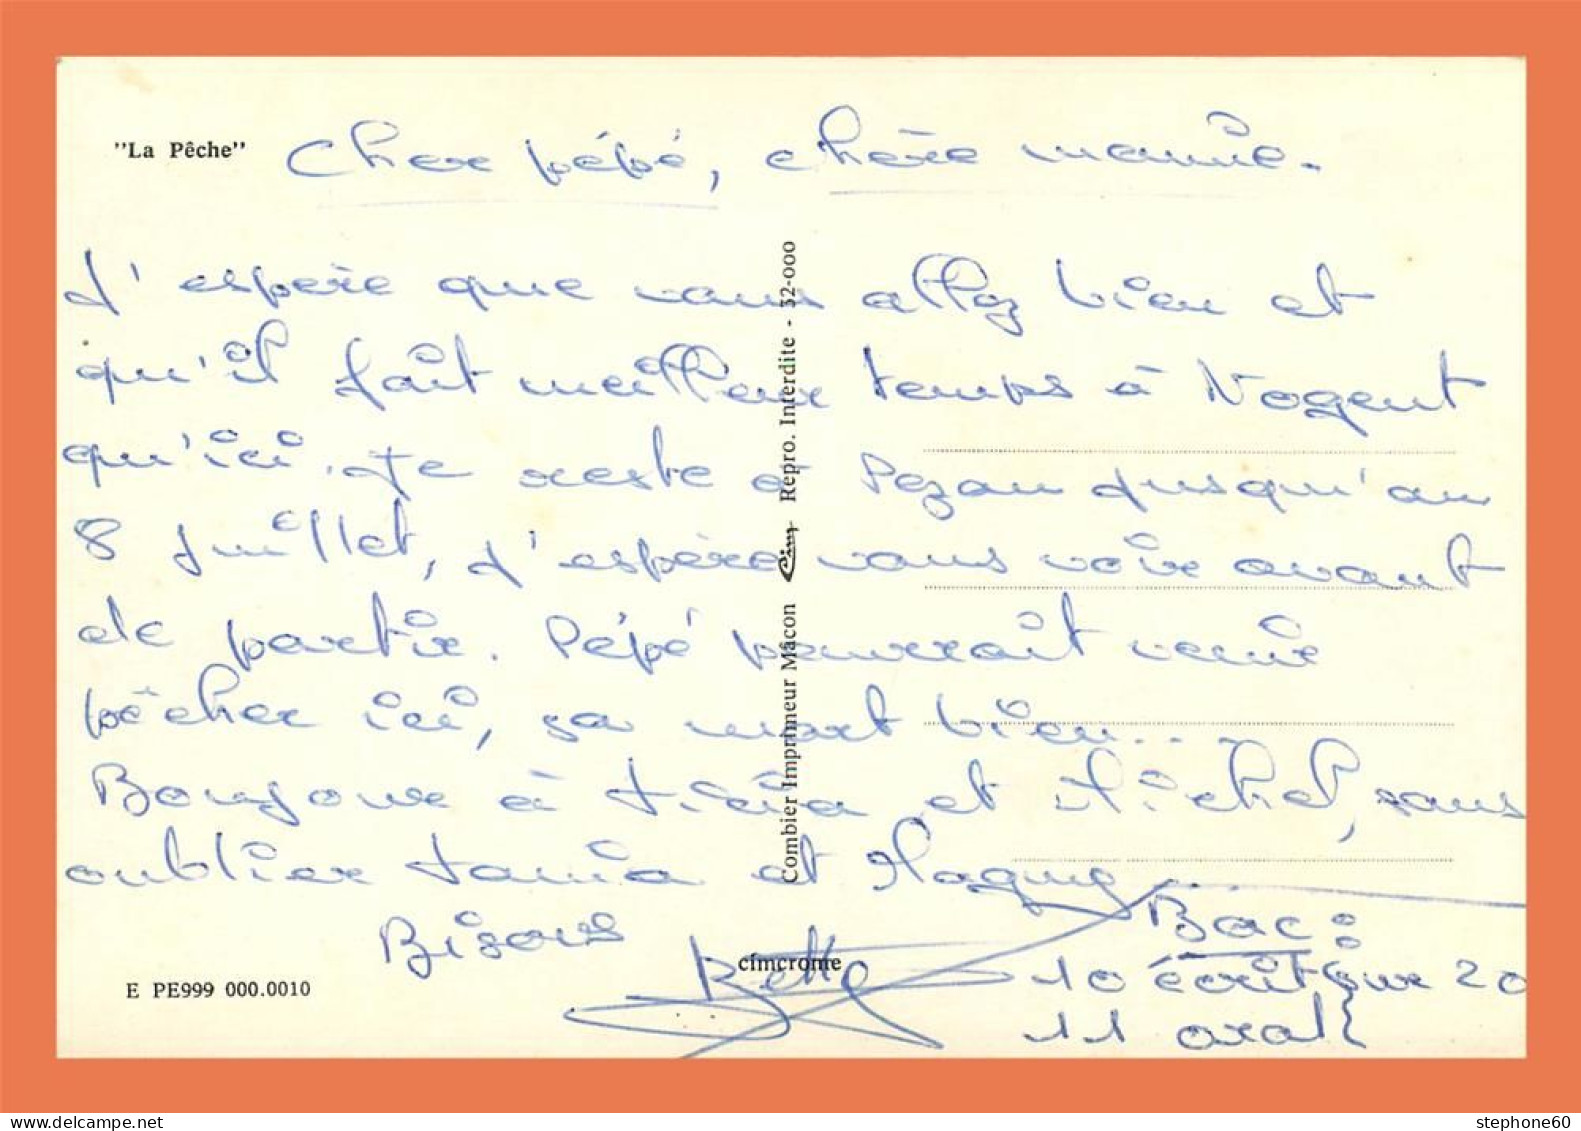 "La Pêche"
Cher pépé, chère mamie.
J'espère que vous allez bien et
qu'il fait meilleur temps à Nogent
qu'ici. Je reste à Pezan jusqu'au
8 Juillet, j'espère vous voir avant
de partir. Pépé pourrait venir
pêcher ici, ça mort bien...
Bonjour à et Michel, sans
oublier Tania et Maguy...
Bisous
Betty
Bac:
10 écrit sur 20
11 oral
Combier Imprimeur Mâcon Cim Repro. Interdite - 32-000
cimcrome
E PE999 000.0010
stephone60